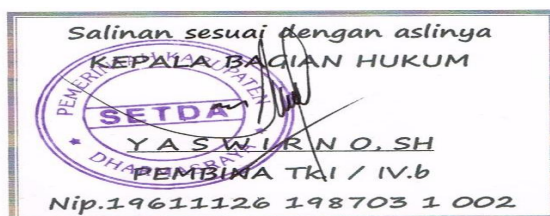 Salinan sesuai dengan aslinya
KEPALA BAGIAN HUKUM
PEMERINTAH KABUPATEN
SETDA
DHARMASRAYA
YASWIRNO, SH
PEMBINA TKI / IV.b
Nip.19611126 198703 1 002